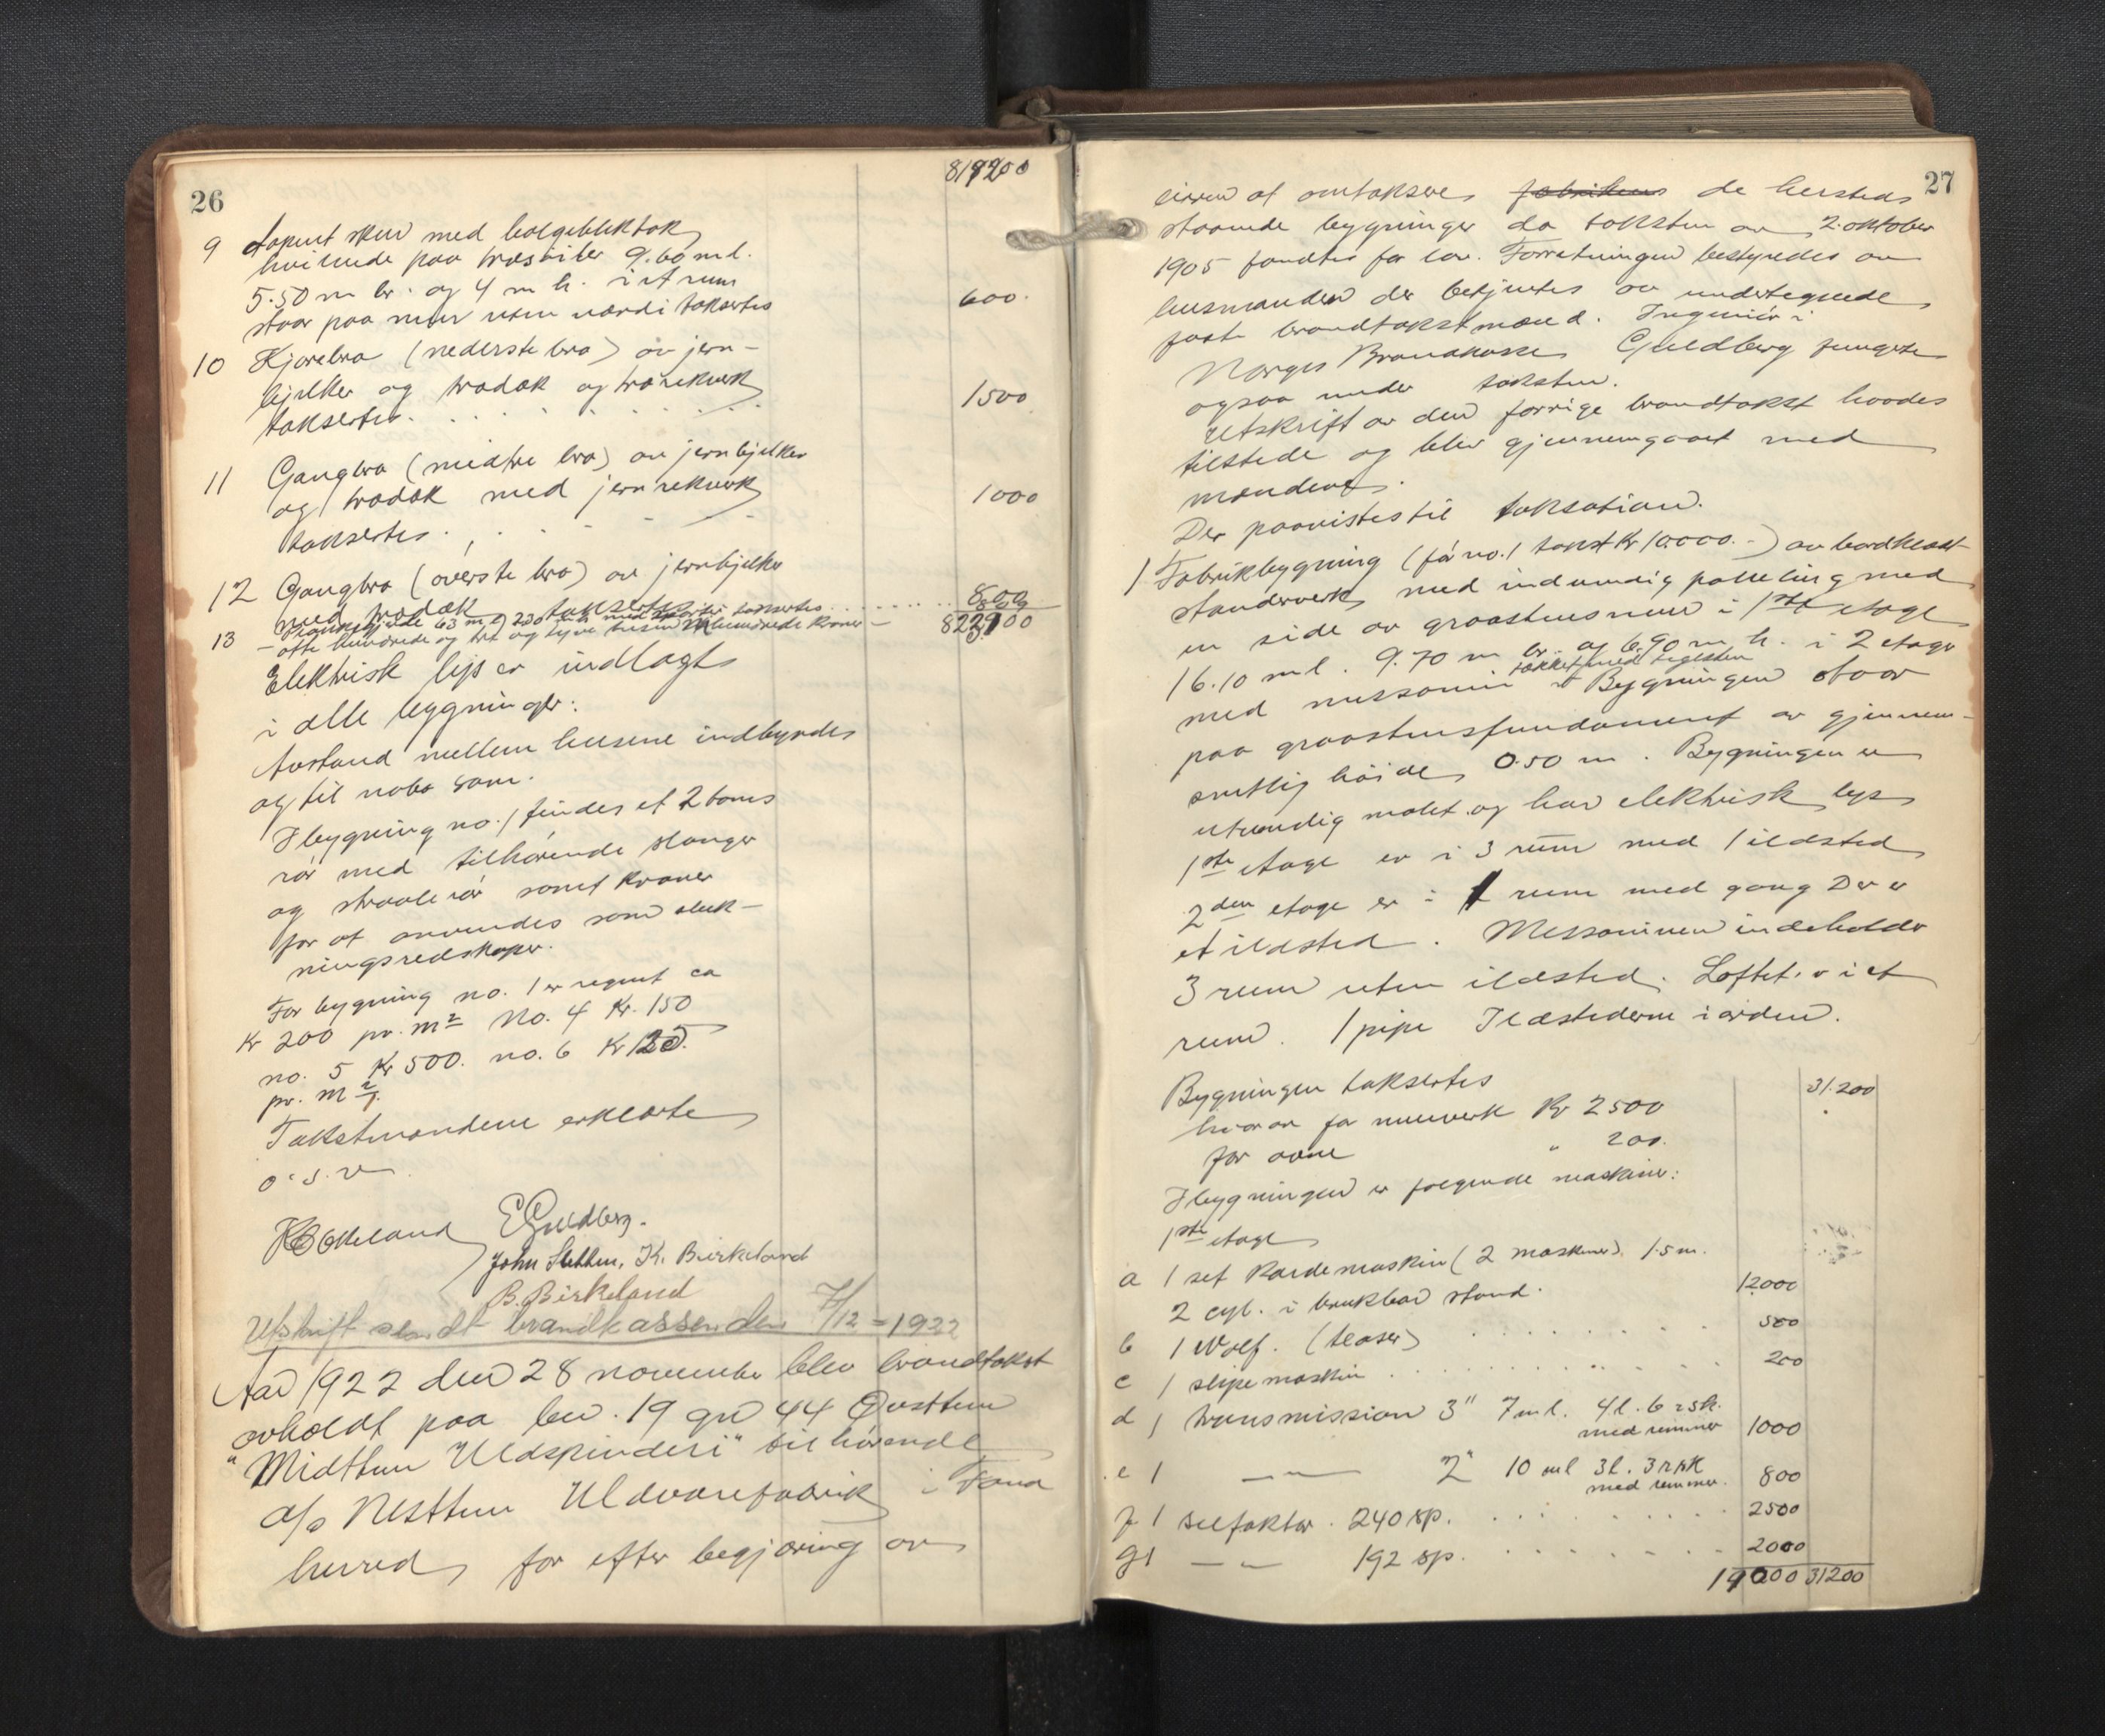 26
819200
9 Aapent skur med bølgeblektak
hvilende paa træstiber 9.60 m l.
5.50 m br. og 4 m h. i et rum
staar paa mur uten værdi taksertes 600.
10 Kjørebro (nederste bro) av jern-
bjelker og trædæk og trærekverk
taksertes. 1500
11 Gangbro (midtre bro) av jernbjelker
og trædæk med jernrekverk
taksertes. 1000
12 Gangbro (øverste bro) av jernbjelker
med trædæk taksertes 800
13 63 m l 2.20 taksertes
otte hundrede og tre og tyve tusen hundrede kroner 823100
Elektrisk lys er indlagt
i alle bygninger.
Avstand mellem husene indbyrdes
og til nabo som.
I bygning no. 1 findes et 2 toms
rør med tilhørende slanger
og straalerør samt kraner
for at anvendes som sluk-
ningsredskaper.
For bygning no. 1 er regnet ca
Kr 200 pr. m² No. 4 Kr. 150
no. 5 Kr 500. no. 6 Kr 125.
pr. m².
Takstmændene erklærte
o. s. v.
E Guldberg.
John Sletten, K. Birkeland
B. Birkeland
Utskrift sendt brandkassen den 7/12 - 1922
Aar 1922 den 28 november blev brandtakst
avholdt paa bru. 19 gn 44 Øvsttun
"Midttun Uldspinderi" tilhørende
A/s Nesttun Uldvarefabrik i Fana
herred, for efter begjæring av
27
eieren at omtaksere fabrikens de hersteds
staaende bygninger da taksten av 2. oktober
1905 fandtes for lav. Forretningen bestyredes av
lensmanden der betjentes av undertegnede
faste brandtakstmænd. Ingeniør i
Norges Brandkasse Guldberg fungerte
ogsaa under taksten.
Utskrift av den forrige brandtakst havdes
tilstede og blev gjennemgaaet med
mændene.
Der paavistes til taksation.
1 Fabrikbygning (før no. 1 takst Kr 10000.-) av bordklædt
standerverk med indvendig paneling med
en side av graastensmur i 1ste etage
16.10 m l. 9.70 m br. og 6.90 m h. i 2 etager
med messanin tækket med taglsten Bygningen staar
paa graastensfundament av gjennem-
snitlig høide 0.50 m. Bygningen er
utvendig malet og har elektrisk lys
1ste etage er i 3 rum med 1 ildsted
2den etage er i 1 rum med gang Der er
et ildsted. Messaninen indeholder
3 rum uten ildsted. Loftet er i et
rum. 1 pipe Ildstederne i orden.
Bygningen taksertes 31.200
hvorav for murverk Kr 2500
for ovne " 200.
I bygningen er følgende maskiner:
1ste etage
a 1 set kardemaskin (2 maskiner) 1.5 m.
2 cyl. i brukbar stand. 12000
b 1 Wolf. (teaser) 500
c 1 slipemaskin 200
d 1 transmission 3" 7 m l. 4 l. 6 r sk.
med remmer 1000
e 1 — " — 2" 10 m l 3 l. 3 r sk
med remmer. 800
f 1 selfaktor. 240 sp. 2500
g 1 — " — 192 sp. 2000
19000 31200